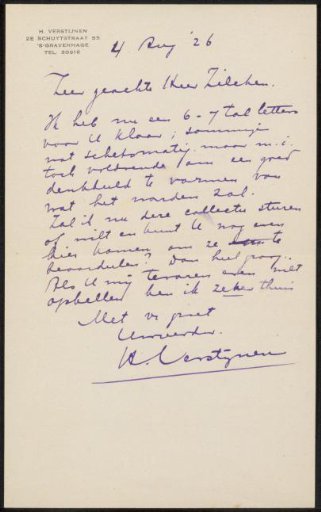 H. VERSTIJNEN
2E SCHUYTSTRAAT 55
'S-GRAVENHAGE
TEL.
4 Aug '26
Zeer geachte Heer Zilcken.
Ik heb nu een 6-7 tal letters
voor U klaar; sommige
wat schetsmatig maar m.i.
toch voldoende om een goed
denkbeeld te vormen van
wat het worden zal.
Zal ik nu deze collectie sturen
of wilt en kunt U nog even
hier komen om ze te
beoordelen? Dan heel graag.
Als U mij tevoren even wilt
opbellen ben ik zeker thuis
Met vr groet
Uw
H. Verstijnen